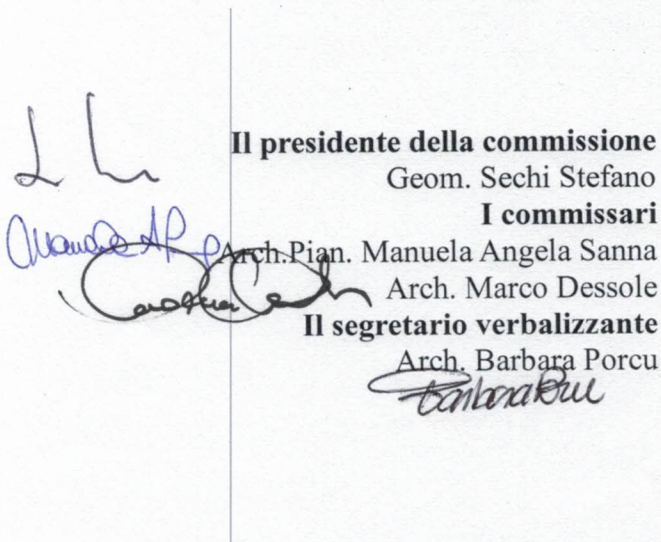 Il presidente della commissione
Geom. Sechi Stefano
I commissari
Arch.Pian. Manuela Angela Sanna
Arch. Marco Dessole
Il segretario verbalizzante
Arch. Barbara Porcu